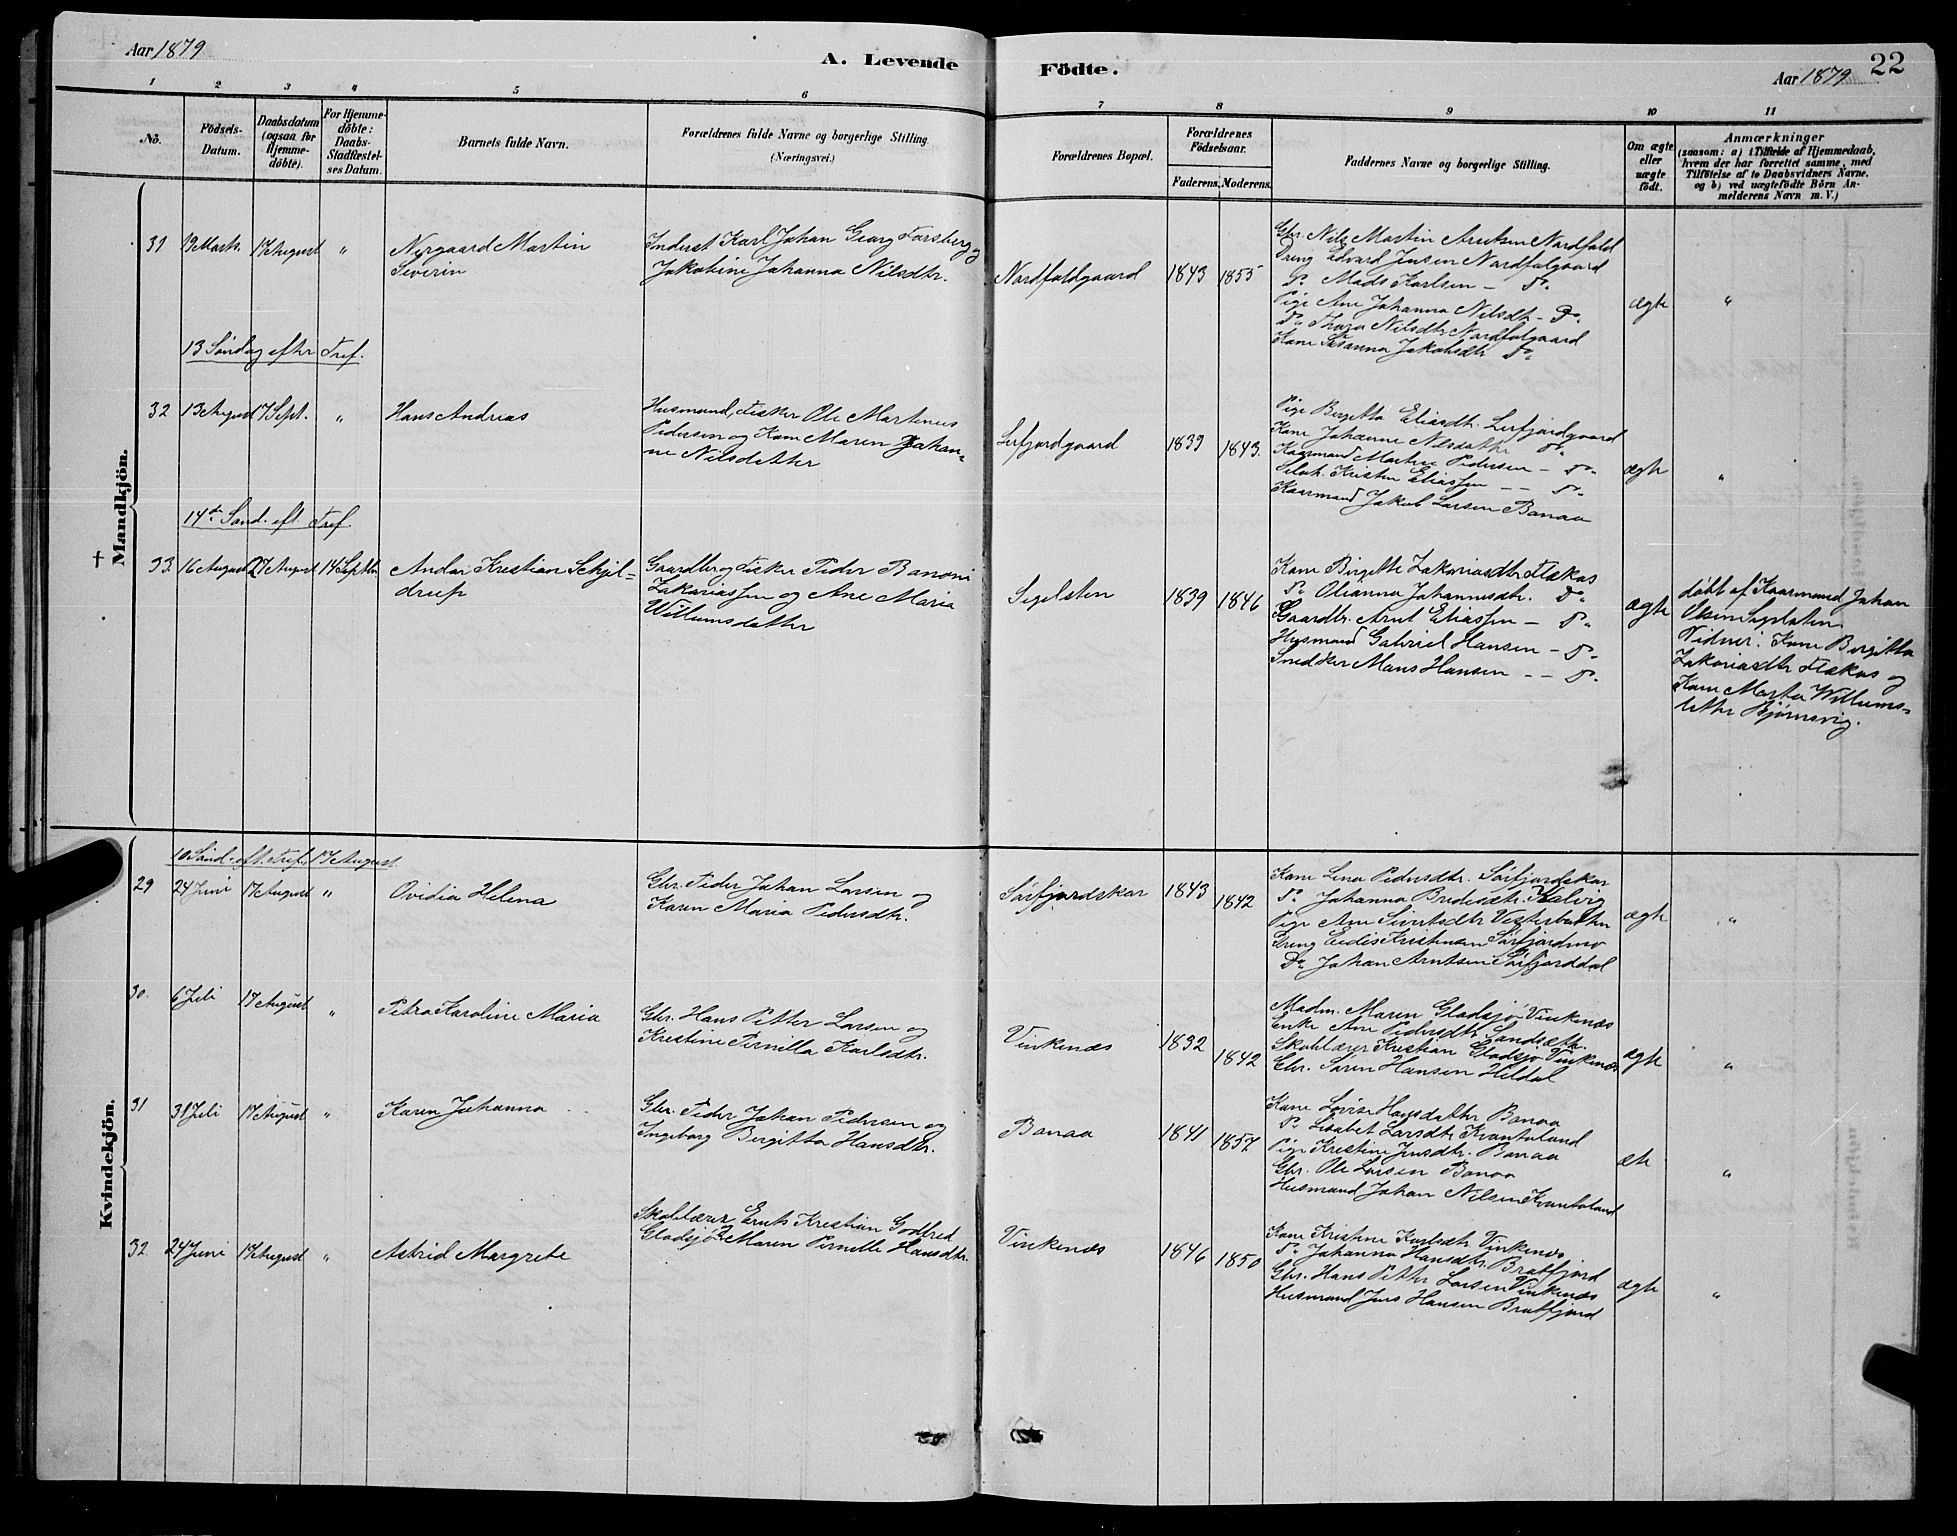 Aar 1879
A. Levende
Födte.
Aar 1879
22
1 2 3 4 5 6 7 8 9 10 11
No.
Födsels-
Datum.
Daabsdatum
(ogsaa for
Hjemme-
döbte).
For Hjemme-
döbte:
Daabs-
Stadfæstel-
ses Datum.
Barnets fulde Navn.
Forældrenes fulde Navne og borgerlige Stilling.
(Næringsvei.)
Forældrenes Bopæl.
Forældrenes
Födselsaar.
Faderens. Moderens.
Faddernes Navne og borgerlige Stilling.
Om ægte
eller
uægte
födt.
Anmærkninger
(saasom: a) i Tilfælde af Hjemmedaab,
hvem der har forrettet samme, med
Tilföielse af to Daabsvidners Navne.
og b) ved uægtefödte Börn An-
melderens Navn m. V.)
Mandkjön.
31 19 Marts 17 August "
Nyrgaard Martin
Severin
Inderst Karl Johan Georg Forsberg og
Jakobine Johanna Nilsdtr.
Nordfoldgaard
1843 1855
Gbr. Nils Martin Arntsen Nordfold
Dreng Edvard Jensen Nordfolgaard
Do Mads Karlsen - Do
Pige Ane Johanna Nilsdtr - Do
Do Thora Nilsdtr Nordfolgaard
Kone Susanna Jakobsdtr Do
ægte "
13 Söndag efter Tref.
32 13 August 7 Sept. "
Hans Andreas
Husmand, Fisker Ole Martinus
Pedersen og Kone Maren Johan=
ne Nilsdatter
Lerfjordgaard
1839 1843.
Pige Bergitta Eliasdtr. Lerfjordgaard
Kone Johanne Nilsdatter Do
Kaarmand Martin Pedersen - Do
Selvst. Kristen Eliassen - - Do
Kaarmand Jakob Larsen Bonaa
ægte "
14de Sönd. eft Tref.
† 33. 16 August 27 August 14 Septbr
Andor Kristian Schjel=
drup
Gaardbr og Fisker Peder Benoni
Zakariassen og Ane Maria
Willumsdatter
Segelsten
1839 1846
Kone Birgitte Zakariasdtr Flekos
Do Olianna Johannesdtr. Do
Gaardbr. Arnt Eliassen - Do
Husmand Gabriel Hansen - Do
Snedker Mons Hansen - - Do
ægte
döbt af Kaarmand Johan
Olsen Segelsten.
Vidner: Kone Birgitta
Zakariasdtr Flekos og
Kone Marta Willums=
datter Bjørnsvig.
Kvindekjön.
10 Sönd. eft. Tref. 17 August.
29 24 Juni 17 August "
Ovidia Helena
Gbr. Peder Johan Larsen og
Karen Maria Pedersdtr.
Sörfjordskar
1843 1842
Kone Lina Pedersdtr. Sörfjordskar
Do Johanna Bredesdtr. Kalvig
Pige Ane Sivertsdtr Vesterbotten
Dreng Eidis Kristensen Sörfjordmo
Do Johan Arntsen Sörfjorddal
ægte "
30. 6 Juli 17 August "
Petra Karoline Maria
Gbr. Hans Petter Larsen og
Kristine Pernilla Karlsdtr.
Vinkenæs
1832 1842
Madm. Maren Gladsjö Vinkenæs
Enke Ane Pedersdtr Landsætter
Skolelærer Kristian Gladsjö Vinkenæs
Gbr. Sören Hansen Hildal
ægte "
31 31 Juli 17 August "
Karen Johanna
Gbr. Peder Johan Pedersen og
Ingeborg Bergitta Hansdtr.
Bonaa
1841 1857
Kone Lovise Hansdatter Bonaa
Do Lisabet Larsdtr Kvantoland
Pige Kristine Jensdtr. Bonaa
Gbr. Ole Larsen Bonaa
Husmand Johan Nilsen Kvantoland
æte "
32 24 Juni 17 August "
Astrid Margrete
Skolelærer Ernts Kristian Godtfred
Gladsjö og Maren Pernelle Hansdtr.
Vinkenæs
1846 1850
Kone Kristine Karlsdtr Vinkenæs
Do Johanna Hansdtr. Bratfjord
Gbr. Hans Petter Larsen Vinkenæs
Husmand Jens Hansen Bratfjord
ægte "